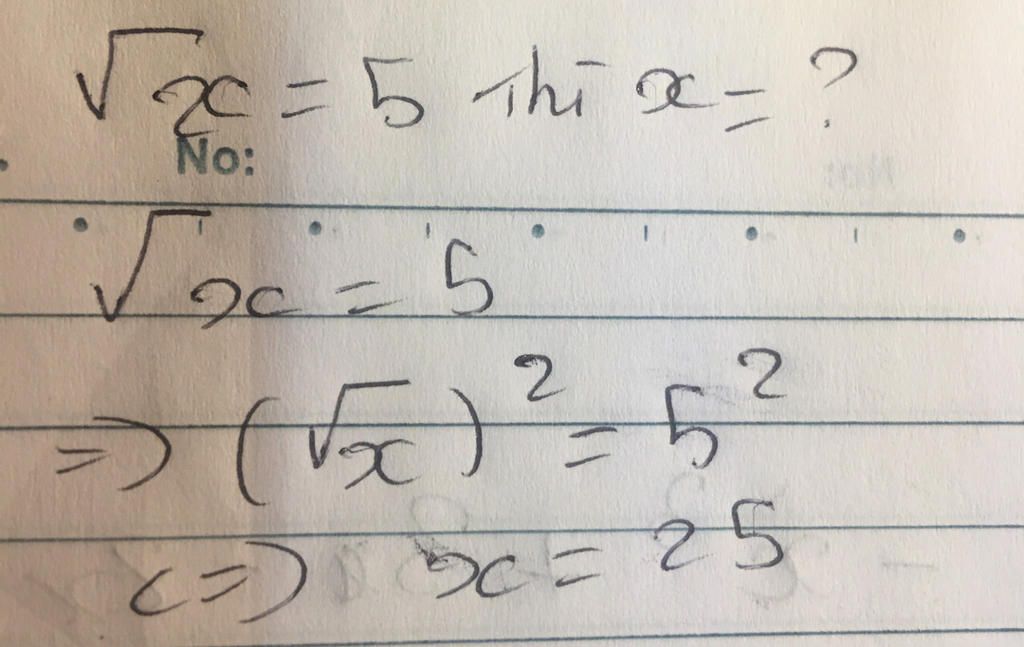 √x = 5 thì x = ?
No:
√x = 5
=> (√x)² = 5²
<=> x = 25